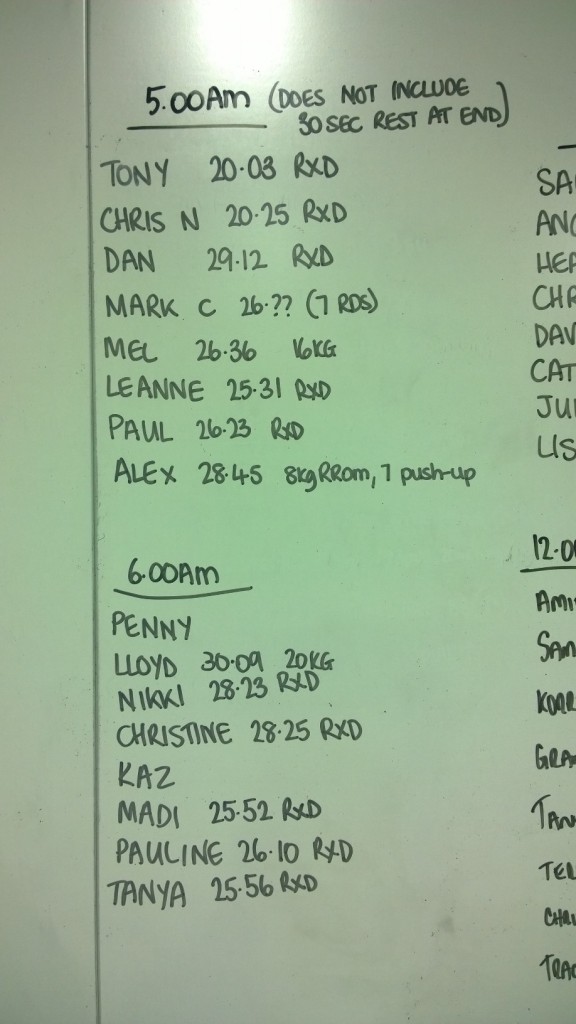 5.00Am (DOES NOT INCLUDE
30 SEC REST AT END)
TONY 20.03 RXD
CHRIS N 20.25 RXD
DAN 29.12 RXD
MARK C 26.?? (7 RDS)
MEL 26.36 16KG
LEANNE 25.31 RXD
PAUL 26.23 RXD
ALEX 28.45 8kg RRom, 7 push-up
6.00Am
PENNY
LLOYD 30.09 20KG
NIKKI 28.23 RXD
CHRISTINE 28.25 RXD
KAZ
MADI 25.52 RXD
PAULINE 26.10 RXD
TANYA 25.56 RXD
SA
AN
HEA
CHR
DAV
CAT
JU
LIS
12.0
Ami
SAm
GRA
TAN
TE
CHRI
TRAC